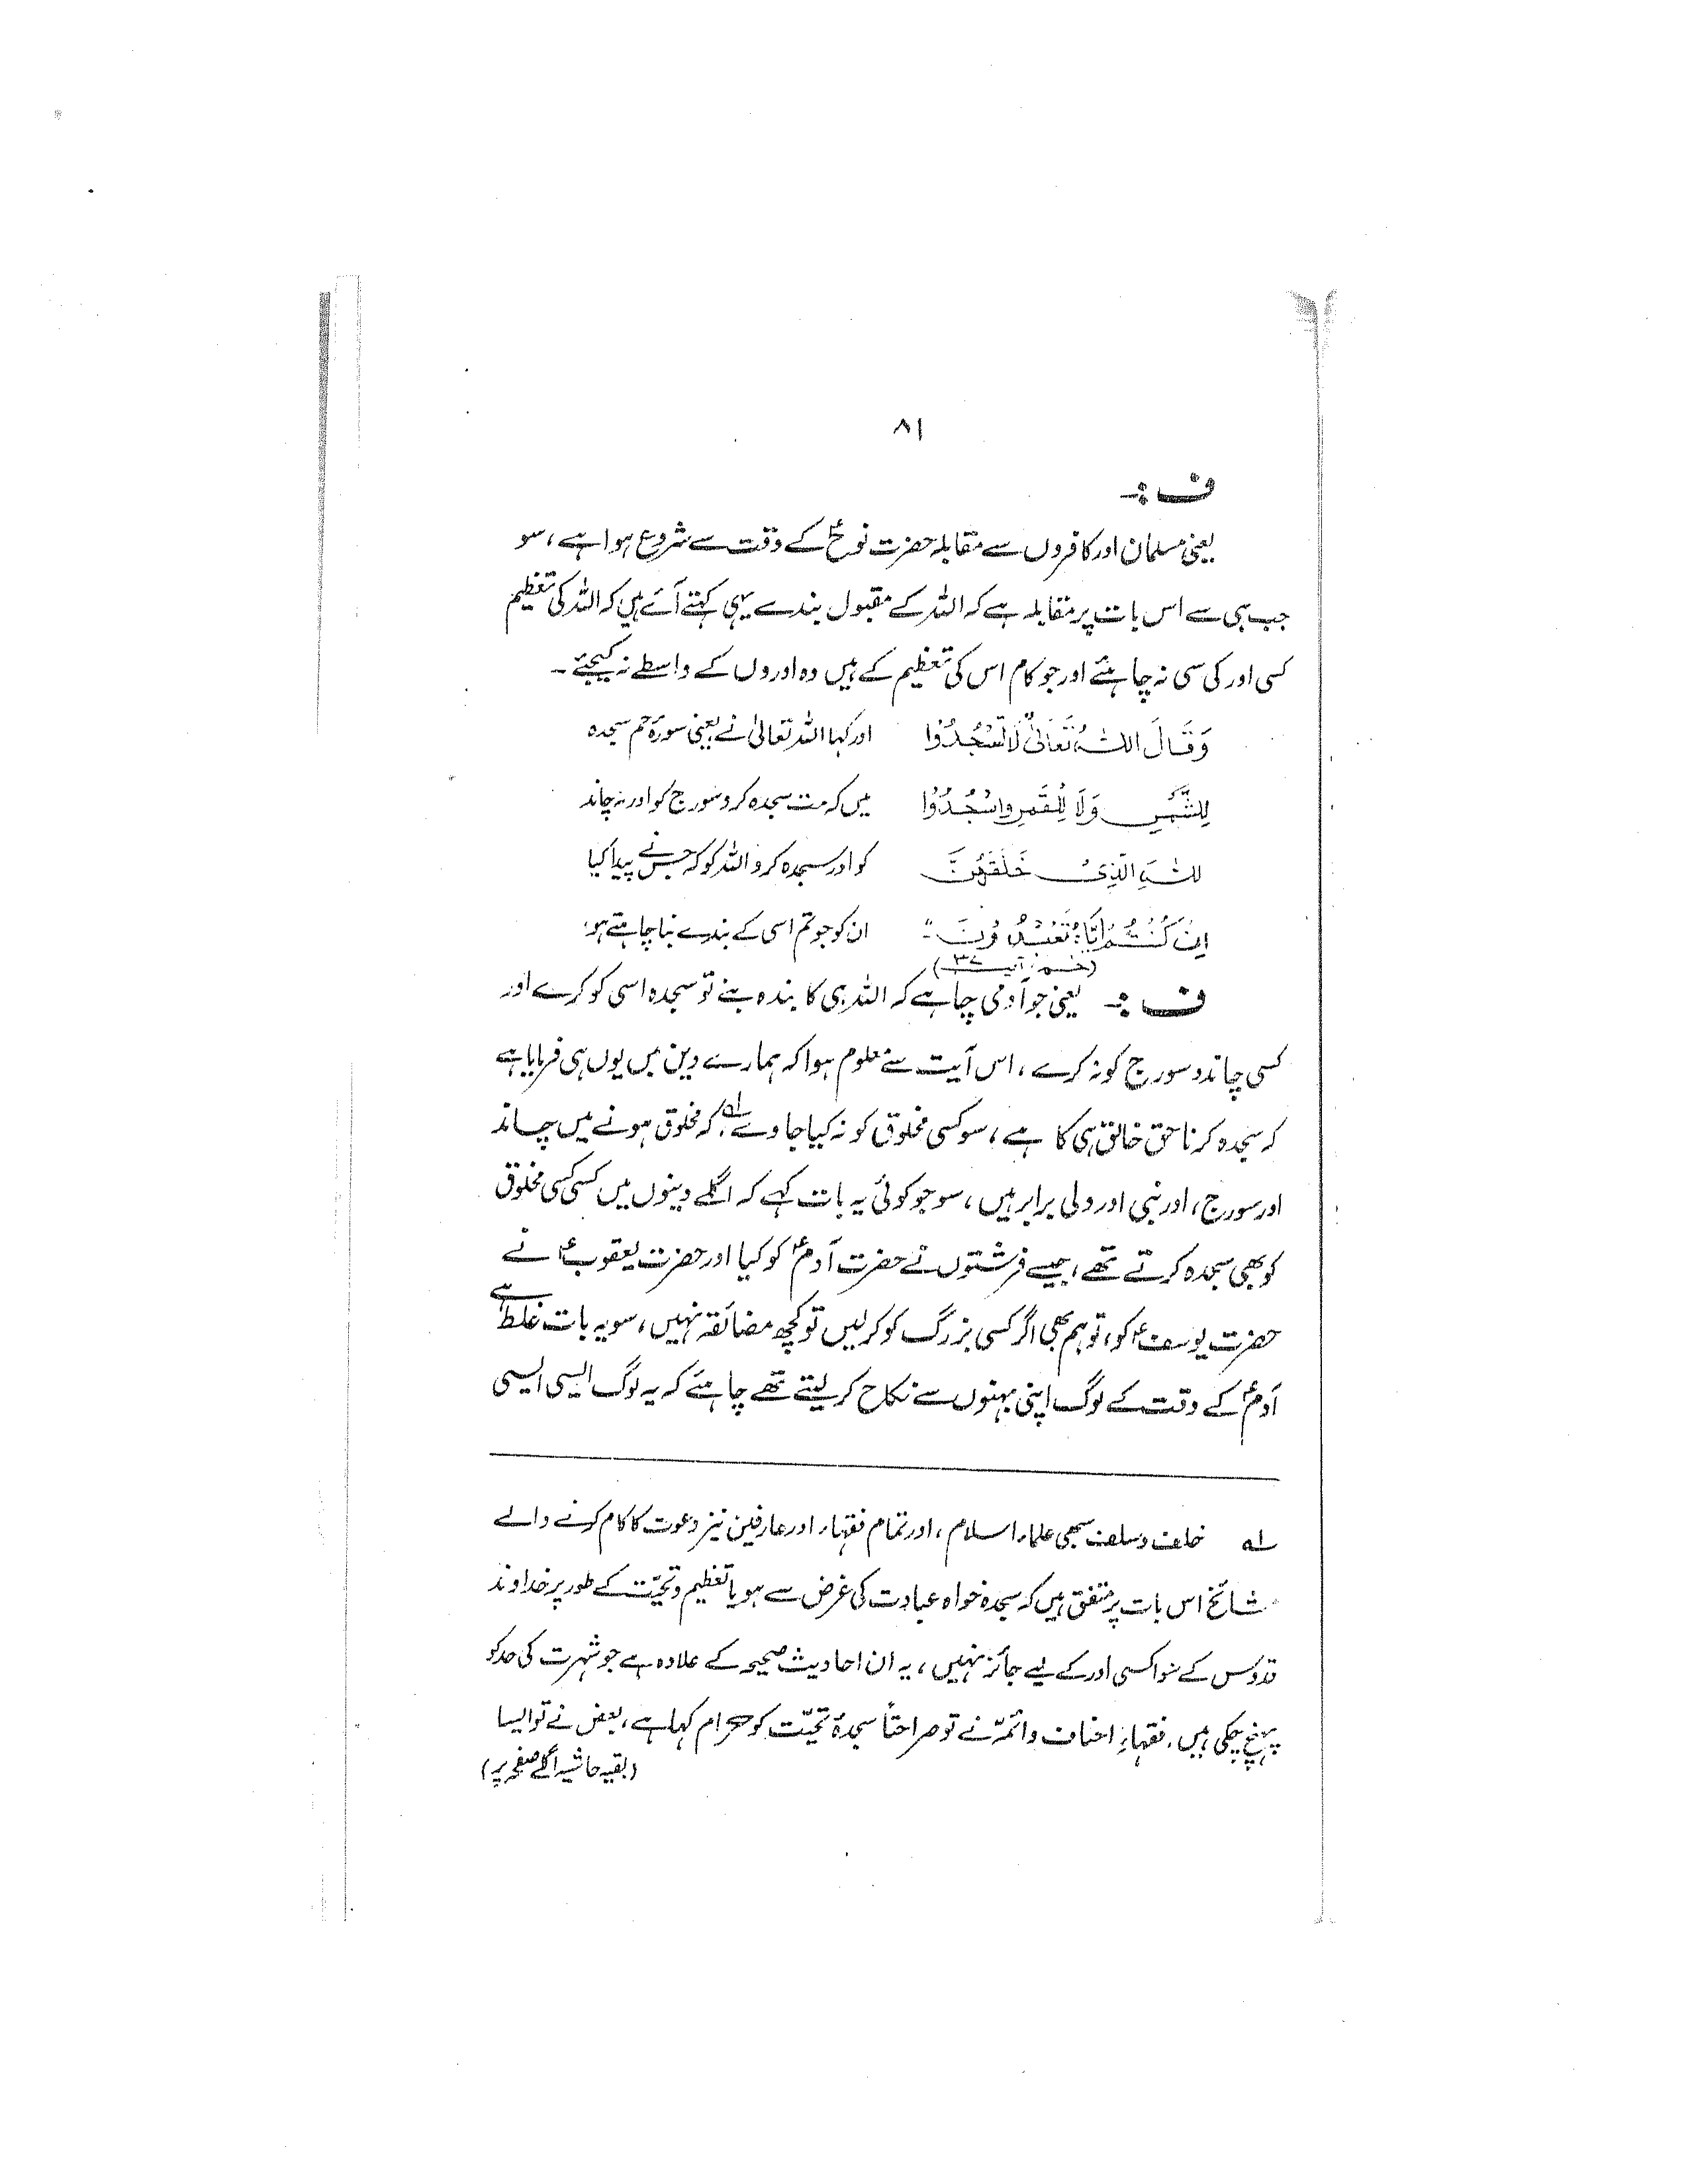 ۸۱
ف :-
یعنی مسلمان اور کافروں سے مقابلہ حضرت نوحؑ کے وقت سے شروع ہوا ہے، سو
جب ہی سے اس بات پر مقابلہ ہے کہ اللہ کے مقبول بندے یہی کہتے آئے ہیں کہ اللہ کی تعظیم
کسی اور کی سی نہ چاہئے اور جو کام اس کی تعظیم کے ہیں وہ اوروں کے واسطے نہ کیجئے۔
وَقَالَ اللہُ تَعَالٰی لَا تَسْجُدُوْا اور کہا اللہ تعالیٰ نے یعنی سورۂ حم سجدہ
لِلشَّمْسِ وَلَا لِلْقَمَرِ وَاسْجُدُوْا میں کہ مت سجدہ کرو سورج کو اور نہ چاند
لِلہِ الَّذِیْ خَلَقَہُنَّ کو اور سجدہ کرو اللہ کو کہ جس نے پیدا کیا
اِنْ کُنْتُمْ اِیَّاہُ تَعْبُدُوْنَ :- ان کو جو تم اسی کے بندے بننا چاہتے ہو،
(حٰم: آیت ۳۷)
ف :- یعنی جو آدمی چاہے کہ اللہ ہی کا بندہ بنے تو سجدہ اسی کو کرے اور
کسی چاند و سورج کو نہ کرے، اس آیت سے معلوم ہوا کہ ہمارے دین میں یوں ہی فرمایا ہے
کہ سجدہ کرنا حق خالق ہی کا ہے، سو کسی مخلوق کو نہ کیا جاوے لہ، کہ مخلوق ہونے میں چاند
اور سورج، اور نبی اور ولی برابر ہیں، سو جو کوئی یہ بات کہے کہ اگلے دینوں میں کسی کسی مخلوق
کو بھی سجدہ کرتے تھے، جیسے فرشتوں نے حضرت آدمؑ کو کیا اور حضرت یعقوبؑ نے
حضرت یوسفؑ کو، تو ہم بھی اگر کسی بزرگ کو کرلیں تو کچھ مضائقہ نہیں، سو یہ بات غلط ہے
آدمؑ کے وقت کے لوگ اپنی بہنوں سے نکاح کرلیتے تھے چاہئے کہ یہ لوگ ایسی ایسی
لہ خلف و سلف سبھی علماء اسلام، اور تمام فقہاء اور عارفین نیز دعوت کا کام کرنے والے
مشائخ اس بات پر متفق ہیں کہ سجدہ خواہ عبادت کی غرض سے ہو یا تعظیم و تحیّت کے طور پر خداوند
قدوس کے سوا کسی اور کے لیے جائز نہیں، یہ ان احادیث صحیحہ کے علاوہ ہے جو شہرت کی حد کو
پہنچ چکی ہیں، فقہاءِ احناف و ائمہ نے تو صراحتاً سجدۂ تحیّت کو حرام کہا ہے، بعض نے تو ایسا
(بقیہ حاشیہ اگلے صفحہ پر)